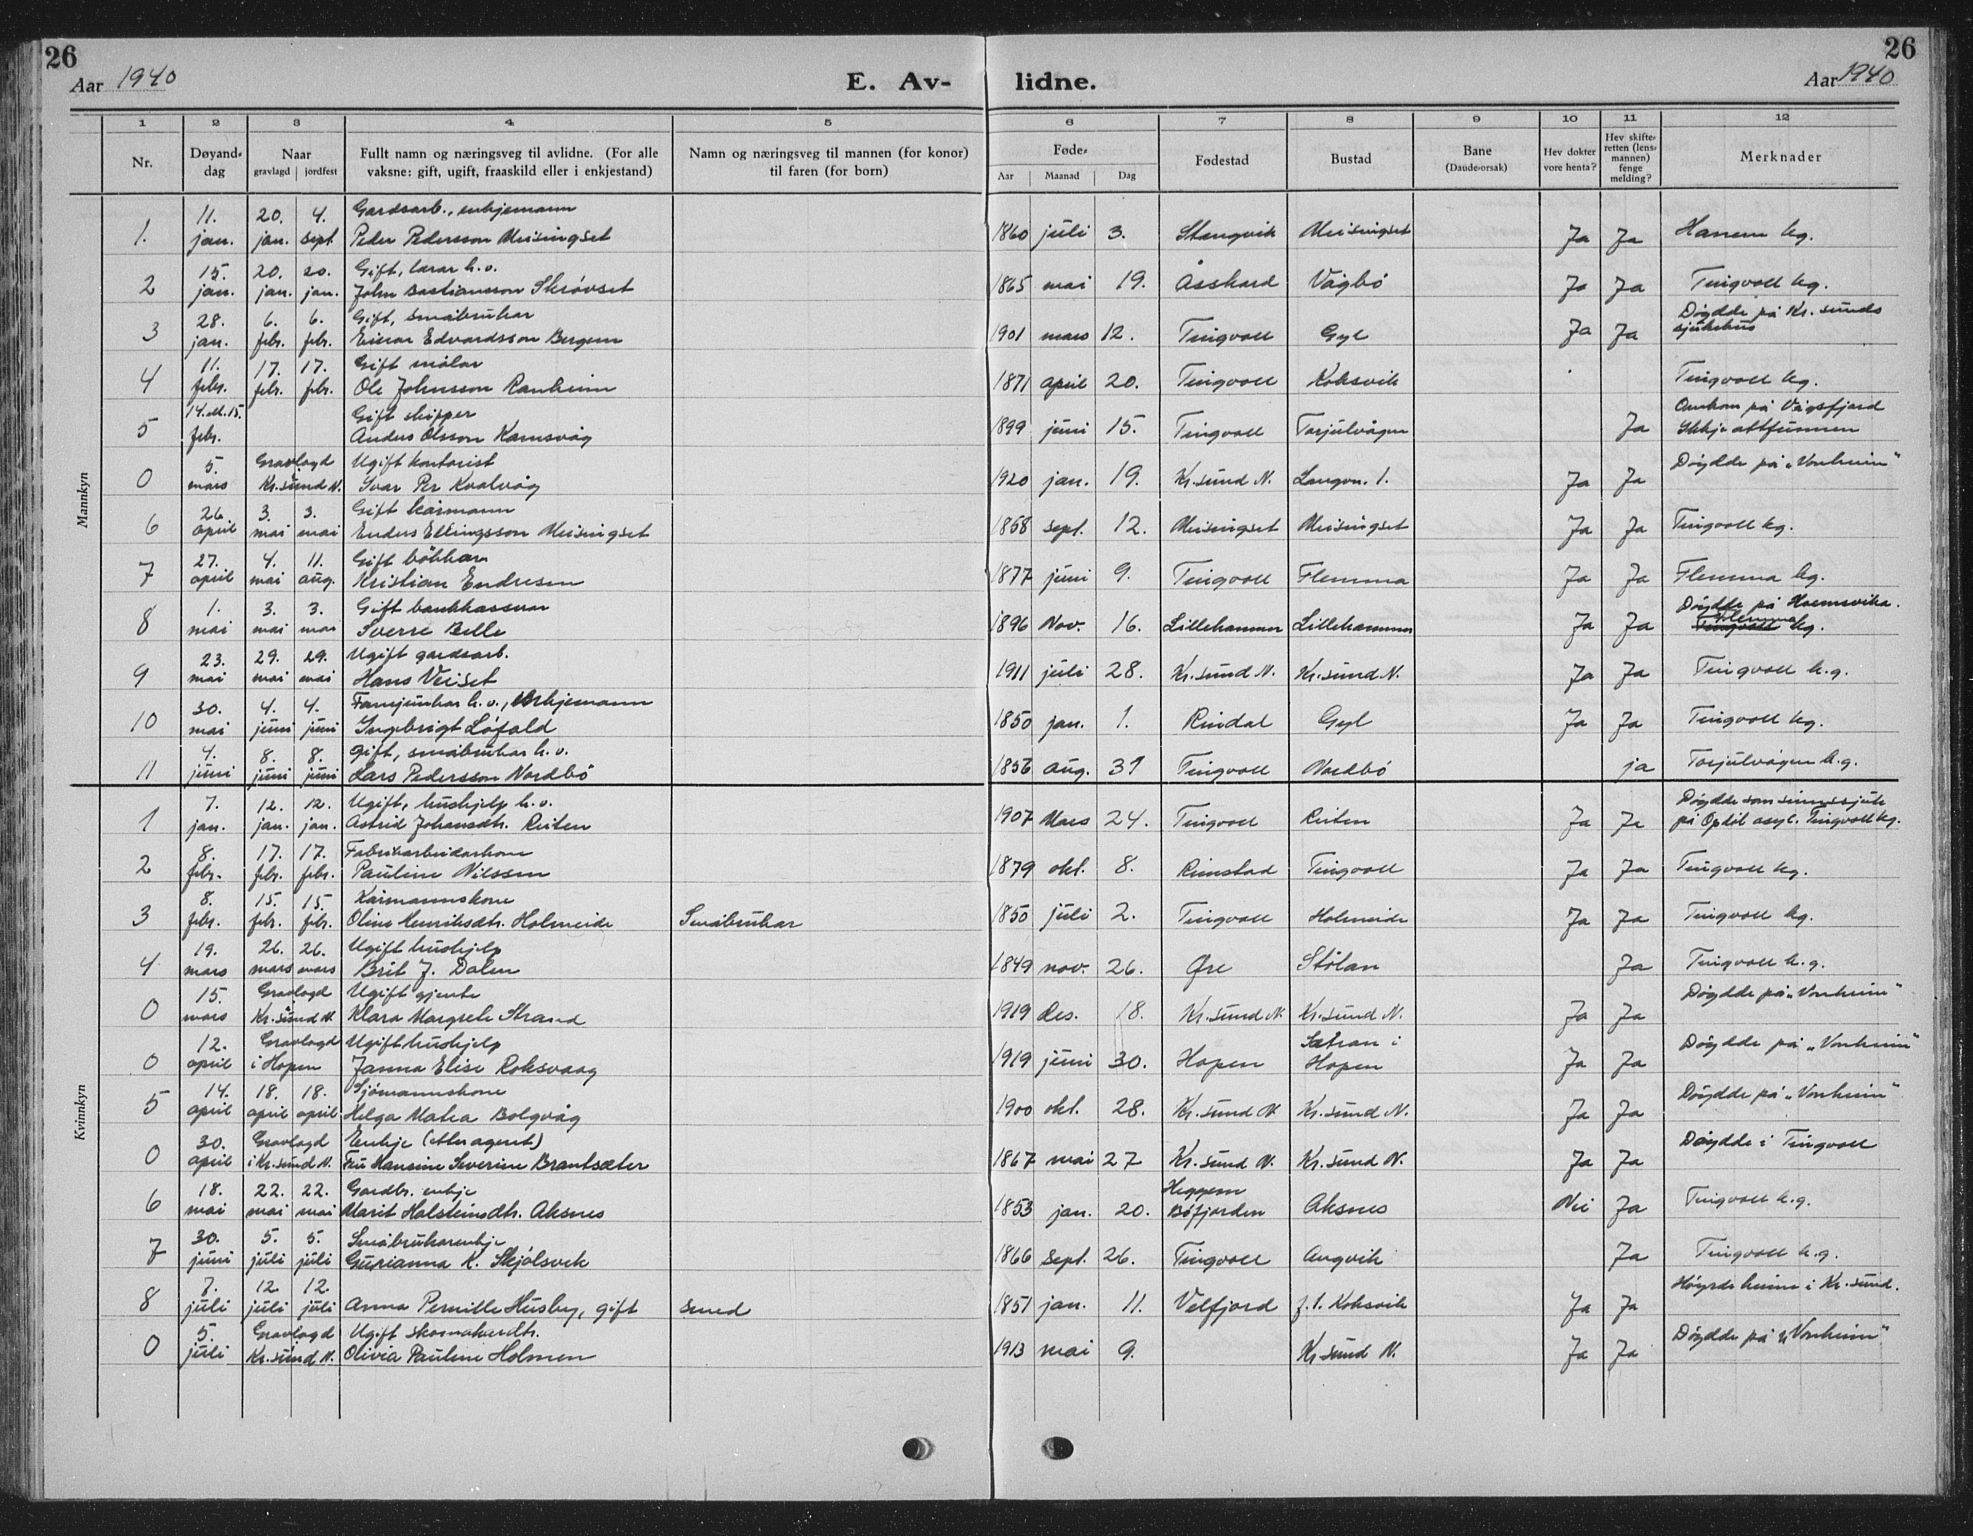 26
Aar 1940
E. Av-
lidne.
26
Aar 1940
1 2 3 4 5 6 7 8 9 10 11 12
Nr.
Døyand-
dag
Naar
gravlagd jordfest
Fullt namn og næringsveg til avlidne. (For alle
vaksne: gift, ugift, fraaskild eller i enkjestand)
Namn og næringsveg til mannen (for konor)
til faren (for born)
Føde-
Aar Maanad Dag
Fødestad
Bustad
Bane
(Daude-orsak)
Hev dokter
vore henta?
Hev skifte-
retten (lens-
mannen)
fenge
melding?
Merknader
Mannkyn
11. 20. 4. Gardsarb., enkjemann
1. jan. jan. sept. Peder Pedersson Meisingset 1860 juli 3. Stangvik Meisingset Ja Ja Hanem kg.
15. 20. 20. Gift, lærar h.v.
2 jan. jan. jan. John Bastiansson Skrøvset 1865 mai 19. Åsskard Vågbø Ja Ja Tingvoll kg.
28. 6. 6. Gift, småbrukar Døydde på Kr. sunds
3 jan. febr. febr. Einar Edvardsson Bergem 1901 mars 12. Tingvoll Gyl Ja Ja sjukehus
11. 17. 17. Gift målar
4 febr. febr. febr. Ole Johnsson Ranheim 1871 april 20. Tingvoll Koksvik Tingvoll kg.
14. el. 15. Gift skipper Omkom på Vågsfjord
5 febr. Anders Olsson Kamsvåg 1899 juni 15. Tingvoll Torjulvågen Ja Ikkje attfunnen
5. Gravlagd Ugift kontorist Døydde på "Vonheim"
0 mars Kr.sund N. Ivar Per Kvalvåg 1920 jan. 19. Kr.sund N. Langvn. 1. Ja Ja
26. 3. 3. Gift kårmann
6 april mai mai Enders Ellingsson Meisingset 1858 sept. 12. Meisingset Meisingset Ja Ja Tingvoll kg.
27. 4. 11. Gift bøkkar
7 april mai aug. Kristian Endresen 1877 juni 9. Tingvoll Flemma Ja Ja Flemma kg.
1. 3. 3. Gift bankkasserar Døydde på Hoemsvika.
8 mai mai mai Sverre Belle 1896 Nov. 16. Lillehammer Lillehammer Ja Ja Tingvoll Flemma kg.
23. 29. 29. Ugift gardsarb.
9 mai mai mai Hans Veiset 1911 juli 28. Kr.sund N. Kr.sund N. Ja Ja Tingvoll k.g.
30. 4. 4. h.v., enkjemann
10 mai juni juni Ingebrigt Løfald 1850 jan. 1. Rindal Gyl Ja Ja Tingvoll kg.
4. 8. 8. gift, småbrukar h.v.
11 juni juni juni Lars Pedersson Nordbø 1856 aug. 31 Tingvoll Nordbø ja Torjulvågen k.g.
Kvinnkyn
7. 12. 12. Ugift, hushjelp h.v. Døydde som sinnssjuk
1 jan. jan. jan. Astrid Johansdtr. Reiten 1907 Mars 24. Tingvoll Reiten Ja Ja på Opdøl asyl. Tingvoll kg.
8. 17. 17. Fabrikarbeidarkone
2 febr. febr. febr. Pauline Nilssen 1879 okt. 8. Rimstad Tingvoll Ja Ja Tingvoll kg.
8. 15. 15. Kårmannskone
3 febr. febr. febr. Oline Henriksdtr. Holmeide Småbrukar 1850 juli 2. Tingvoll Holmeide Ja Ja Tingvoll kg.
19. 26. 26. Ugift hushjelp
4 mars mars mars Brit J. Dalen 1849 nov. 26. Øre Stølan Ja Tingvoll k.g.
15. Gravlagd Ugift gjente Døydde på "Vonheim"
0 mars Kr.sund N. Klara Margrete Strand 1919 des. 18. Kr.sund N. Kr.sund N. Ja Ja
12. Gravlagd Ugift hushjelp Sætran i Døydde på "Vonheim"
0 april i Hopen Janna Elise Roksvaag 1919 juni 30. Hopen Hopen Ja Ja
14. 18. 18. Sjømannskone Døydde på "Vonheim"
5 april april april Helga Matea Bolgvåg 1900 okt. 28. Kr.sund N. Kr.sund N. Ja Ja
30. Gravlagd Enkje (etter agent) Døydde i Tingvoll
0 april i Kr.sund N. Fru Hansine Severine Brantsæter 1867 mai 27 Kr.sund N. Kr.sund N. Ja Ja
18. 22. 22. Gardbr. enkje Heggem
6 mai mai mai Marit Halsteinsdtr. Aksnes 1853 jan. 20. Bøfjorden Aksnes Nei Ja Tingvoll k.g.
30. 5. 5. Småbrukarenkje
7 juni juli juli Gurianna K. Skjølsvik 1866 sept. 26. Tingvoll Angvik Ja Tingvoll k.g.
7. 12. 12. Høyrde heime i Kr.sund.
8 juli juli juli Anna Pernille Husby, gift smed 1851 jan. 11. Velfjord f.t. Koksvik Ja Ja
5. Gravlagd Ugift skomakerdtr. Døydde på "Vonheim"
0 juli Kr.sund N. Olivia Pauline Holmen 1913 mai 9. Kr.sund N. Ja Ja